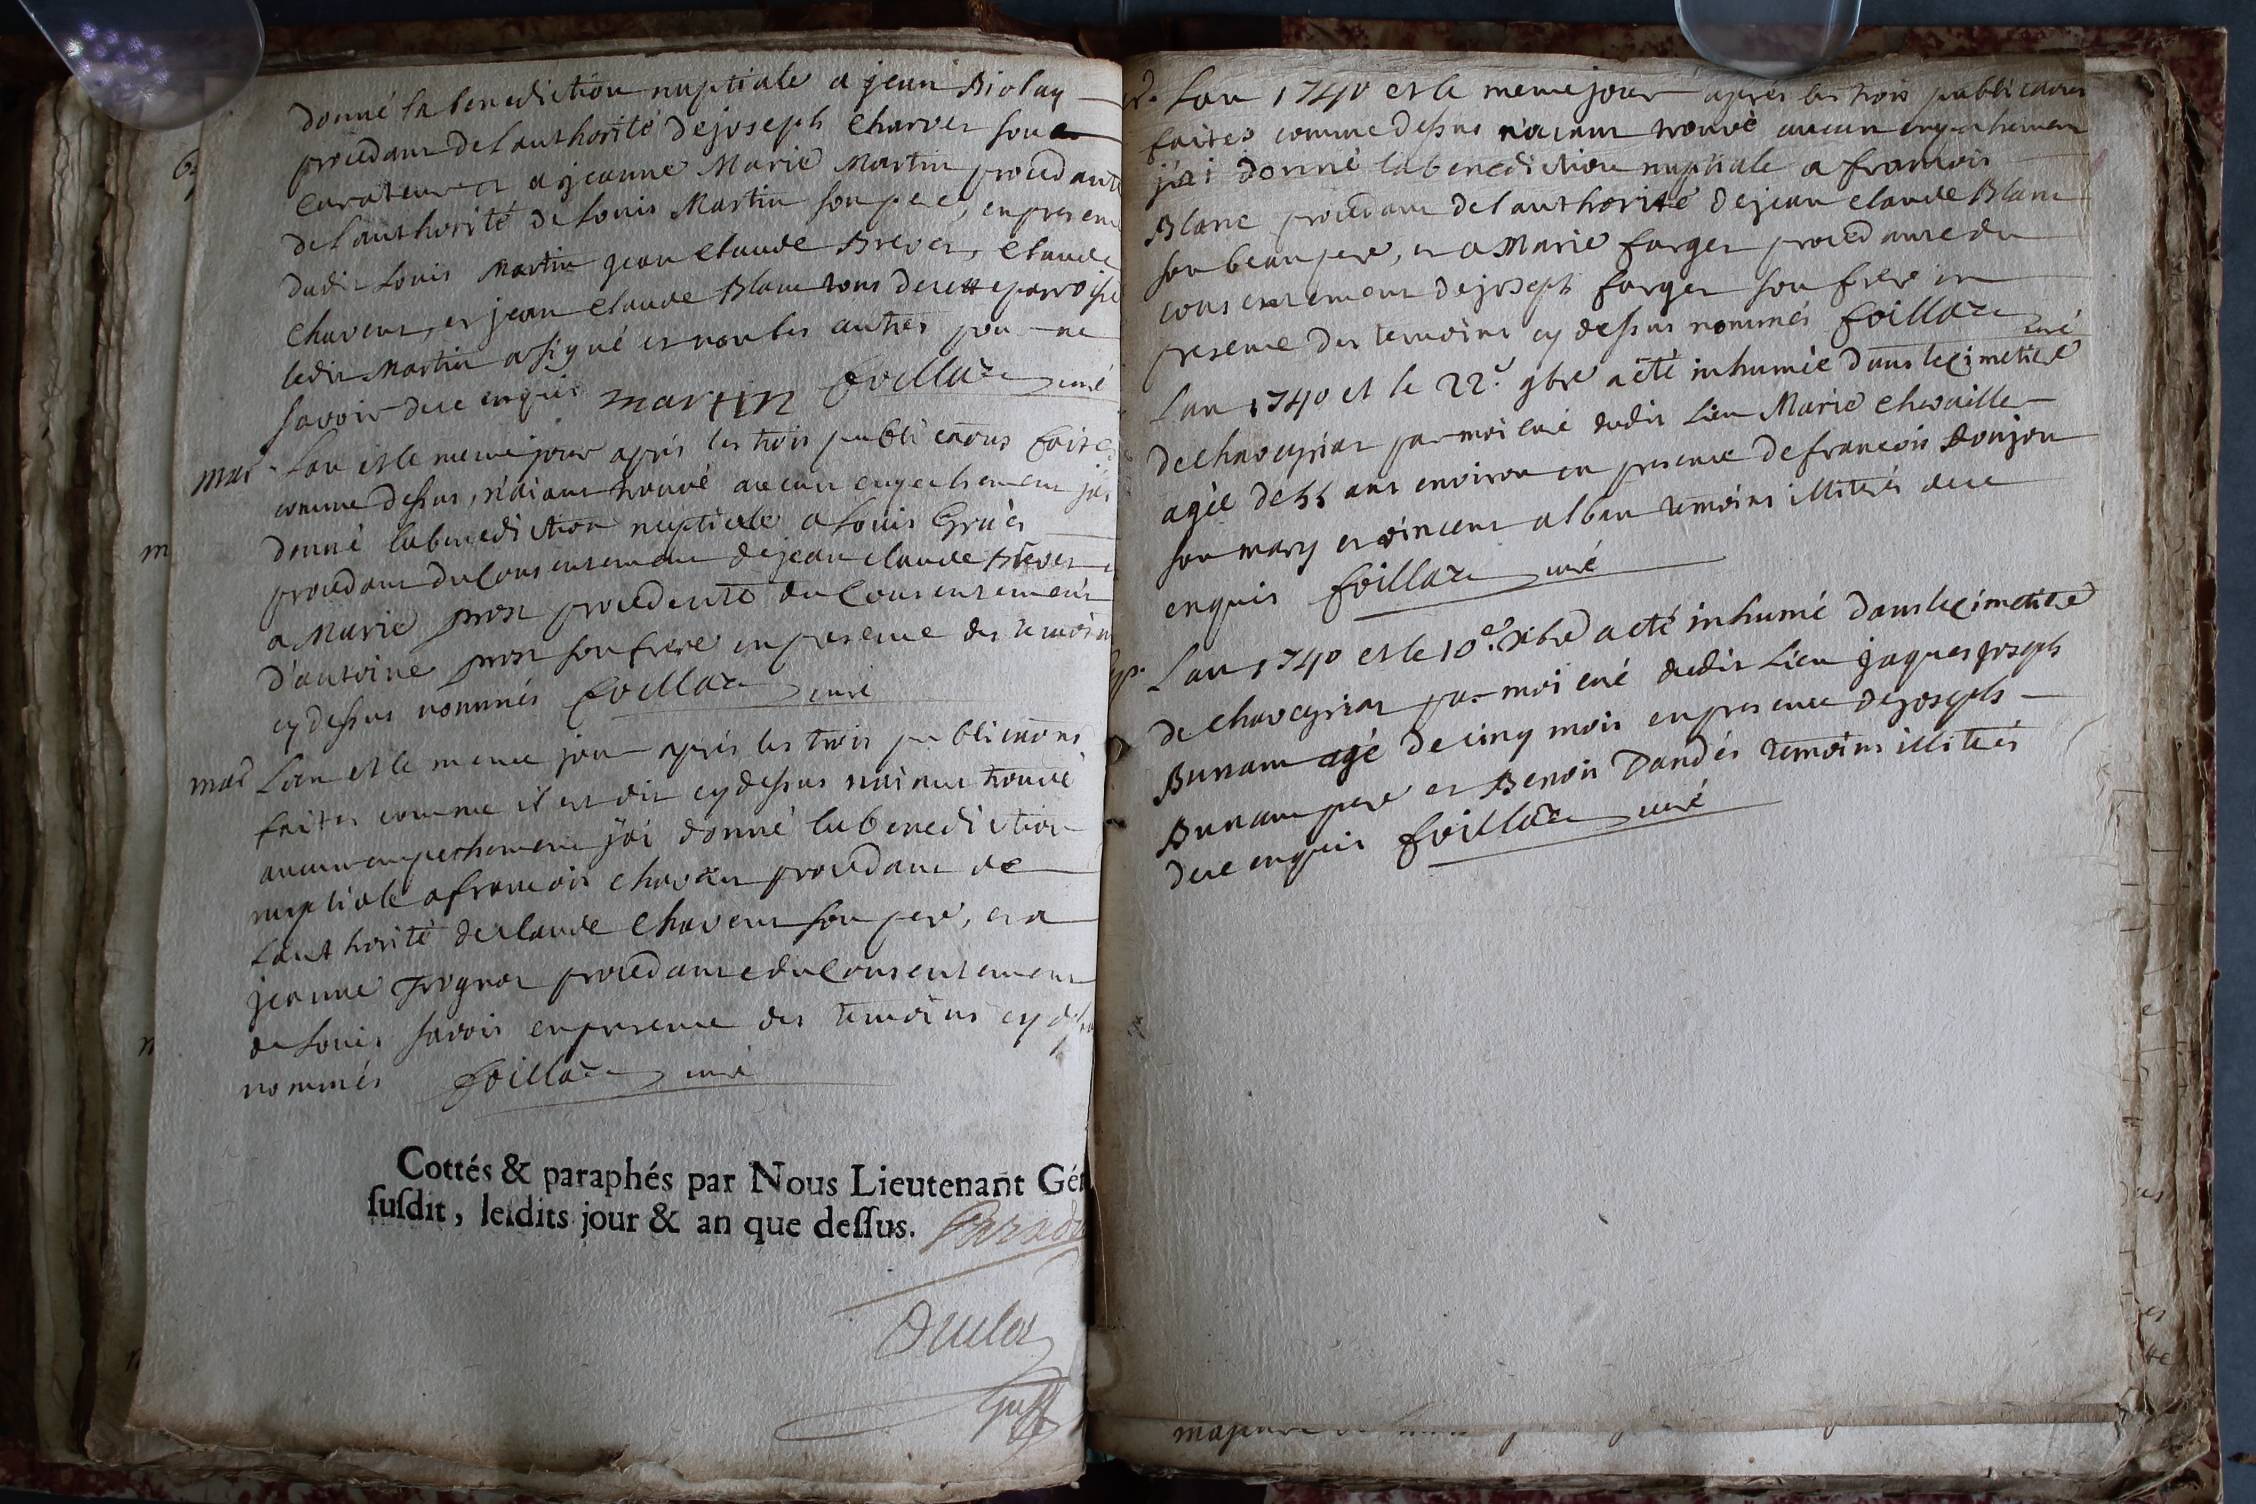 donné la benediction nuptiale a jean Biolay
procedant de l'authorité de joseph Charvet son
curateur et a jeanne Marie Martin procedante
de l'authorité de Louis Martin son pere, en presence
dudit Louis Martin jean Claude Brevet, Claude
Chavent, et jean Claude Blanc tous de cette parroisse
ledit Martin a signé et non les autres pour ne
savoir de ce enquis martin foillaz curé
mar. Lan et le meme jour aprés les trois publications faites
comme dessus, n'aiant trouvé aucun empechement j'ai
donné la benediction nuptiale a Louis
procedant du consentement de jean claude Brevet
a Marie prost procedente du consentement
d'antoine prost son frere en presence des temoins
cy dessus nommés foillaz curé
mar Lan et le meme jour aprés les trois publications
faites comme il est dit cy dessus n'aiant trouvé
aucun empechement j'ai donné la benediction
nuptiale a francois chavent procedant de
l'authorité de claude Chavent son pere, et a
jeanne procedante du consentement
de Louis savoir en presence des temoins cy dessus
nommés foillaz curé
Cottés & paraphés par Nous Lieutenant Gén
susdit, lesdits jour & an que dessus.
Lan 1740 et le meme jour aprés les trois publications
faites comme dessus n'aiant trouvé aucun empechement
j'ai donné la benediction nuptiale a francois
Blanc procedant de l'authorité de jean claude Blanc
son beau pere, et a Marie farget procedante du
consentement de joseph farget son frere en
presence des temoins cy dessus nommés foillaz curé
Lan 1740 et le 22e 9bre a eté inhumée dans le cimetiere
de chaveyriat par moi curé dudit Lieu Marie
agée de 55 ans environ en presence de francois donjon
son mary et vincent alban temoins illiterés de ce
enquis foillaz curé
Lan 1740 et le 10e Xbre a eté inhumé dans le cimetiere
de chaveyriat par moi curé dudit Lieu jaques joseph
Bunam agé de cinq mois en presence de joseph
Bunam pere et Benoit Dandés temoins illiterés
de ce enquis foillaz curé